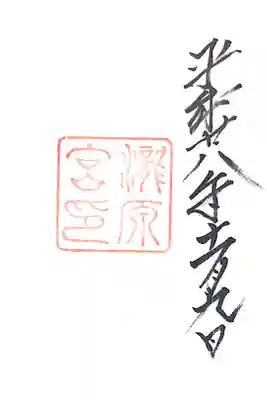 平成廿八年十一月九日
瀧原
宮印